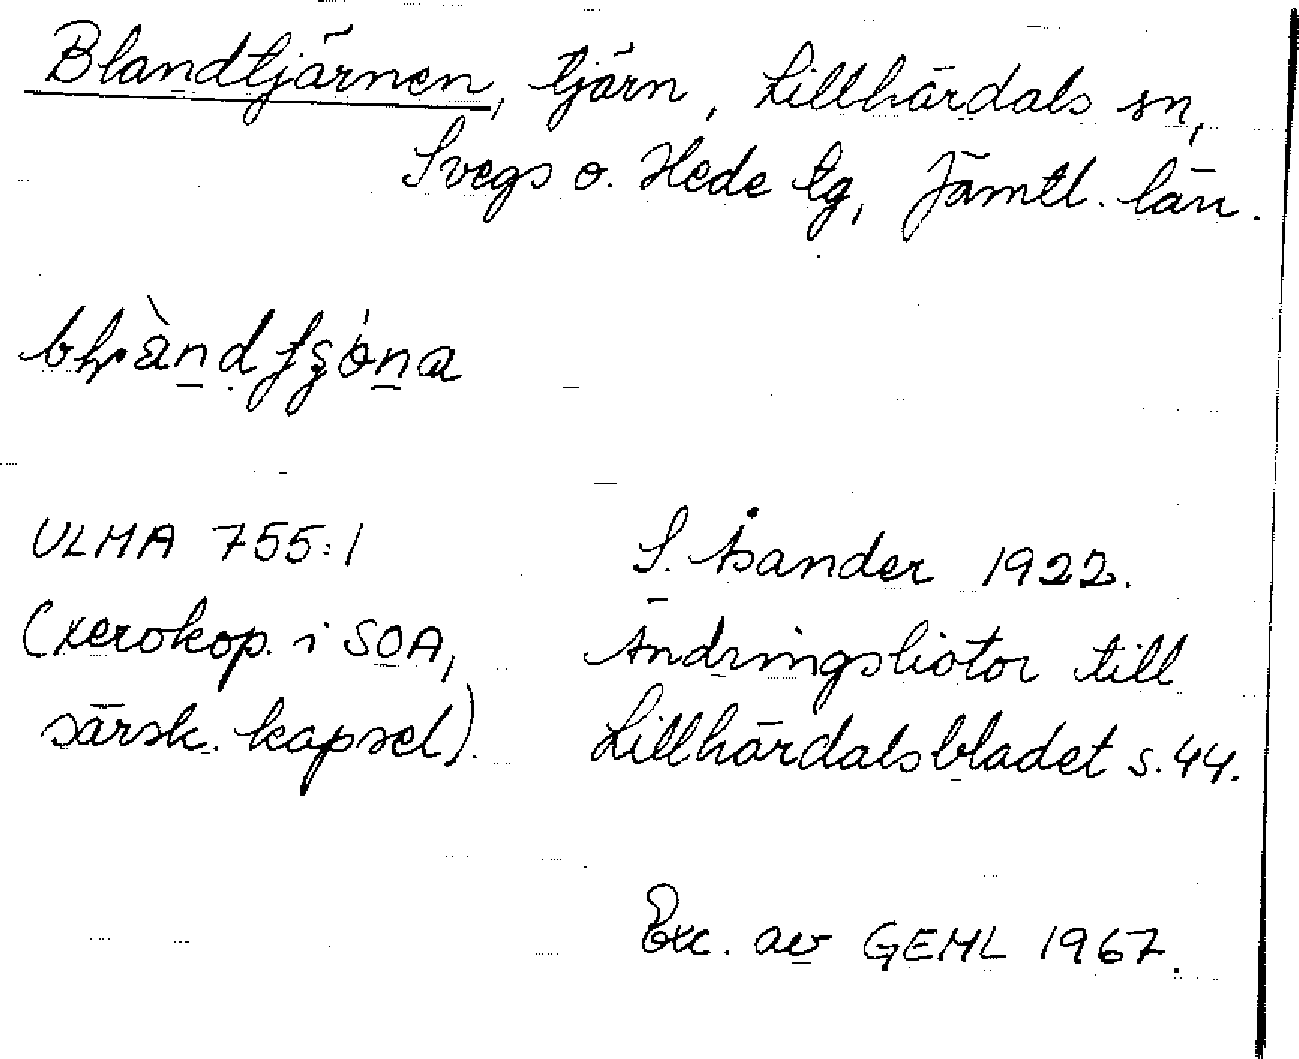 Blandtjärnen, tjärn, Lillhärdals sn,
Svegs o. Hede tg, Jämtl. län.
ULMA 755:1
(xerokop. i SOA,
särsk. kapsel).
S. Åsander 1922.
Ändringslistor till
Lillhärdalsbladet s. 44.
Exc. av GEML 1967.